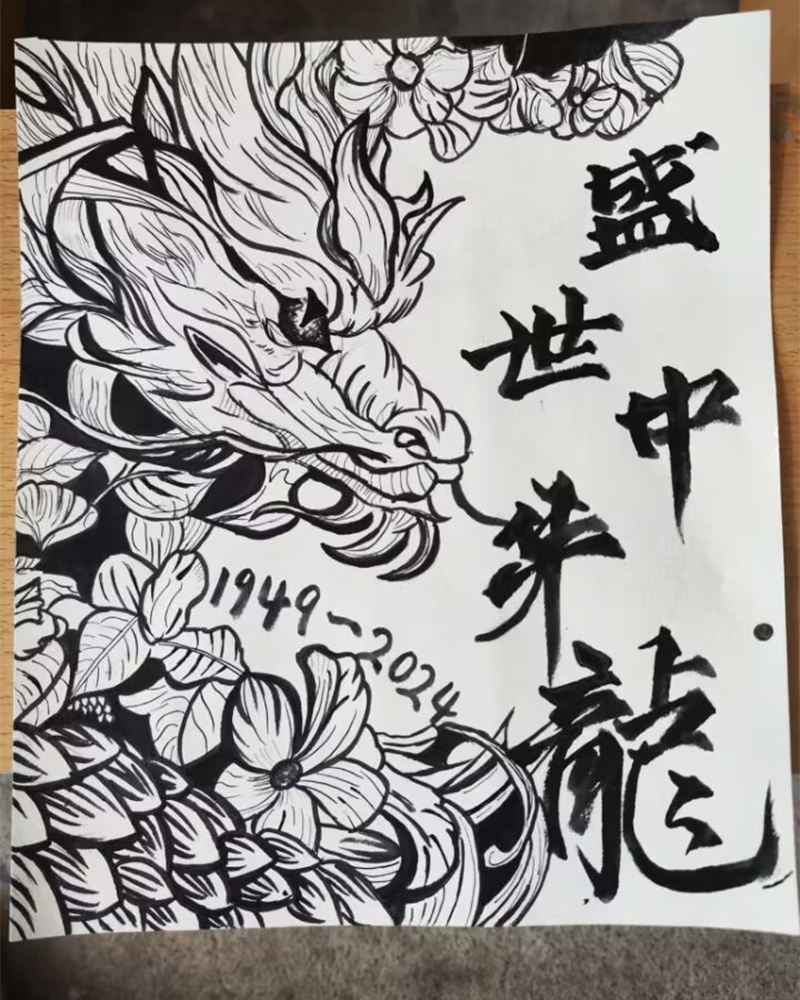 盛世
中华
龍
1949-2024